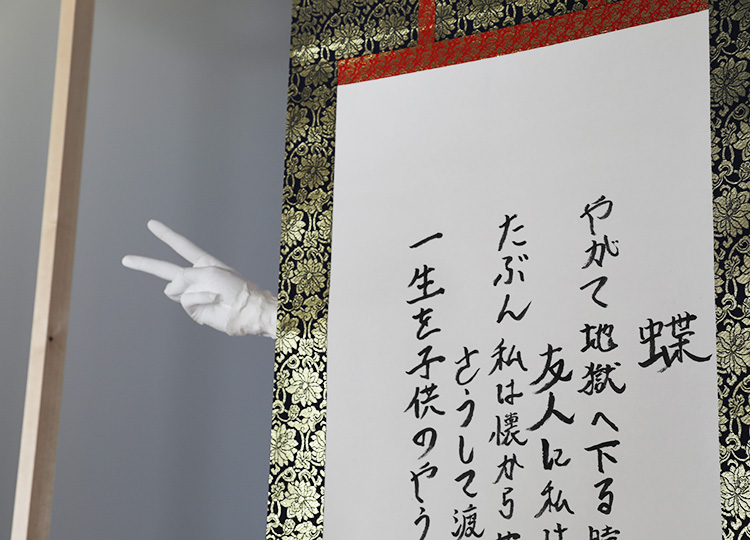 蝶
やがて地獄へ下る時
友人に私は
たぶん私は懐から
さうして渡
一生を子供のやう